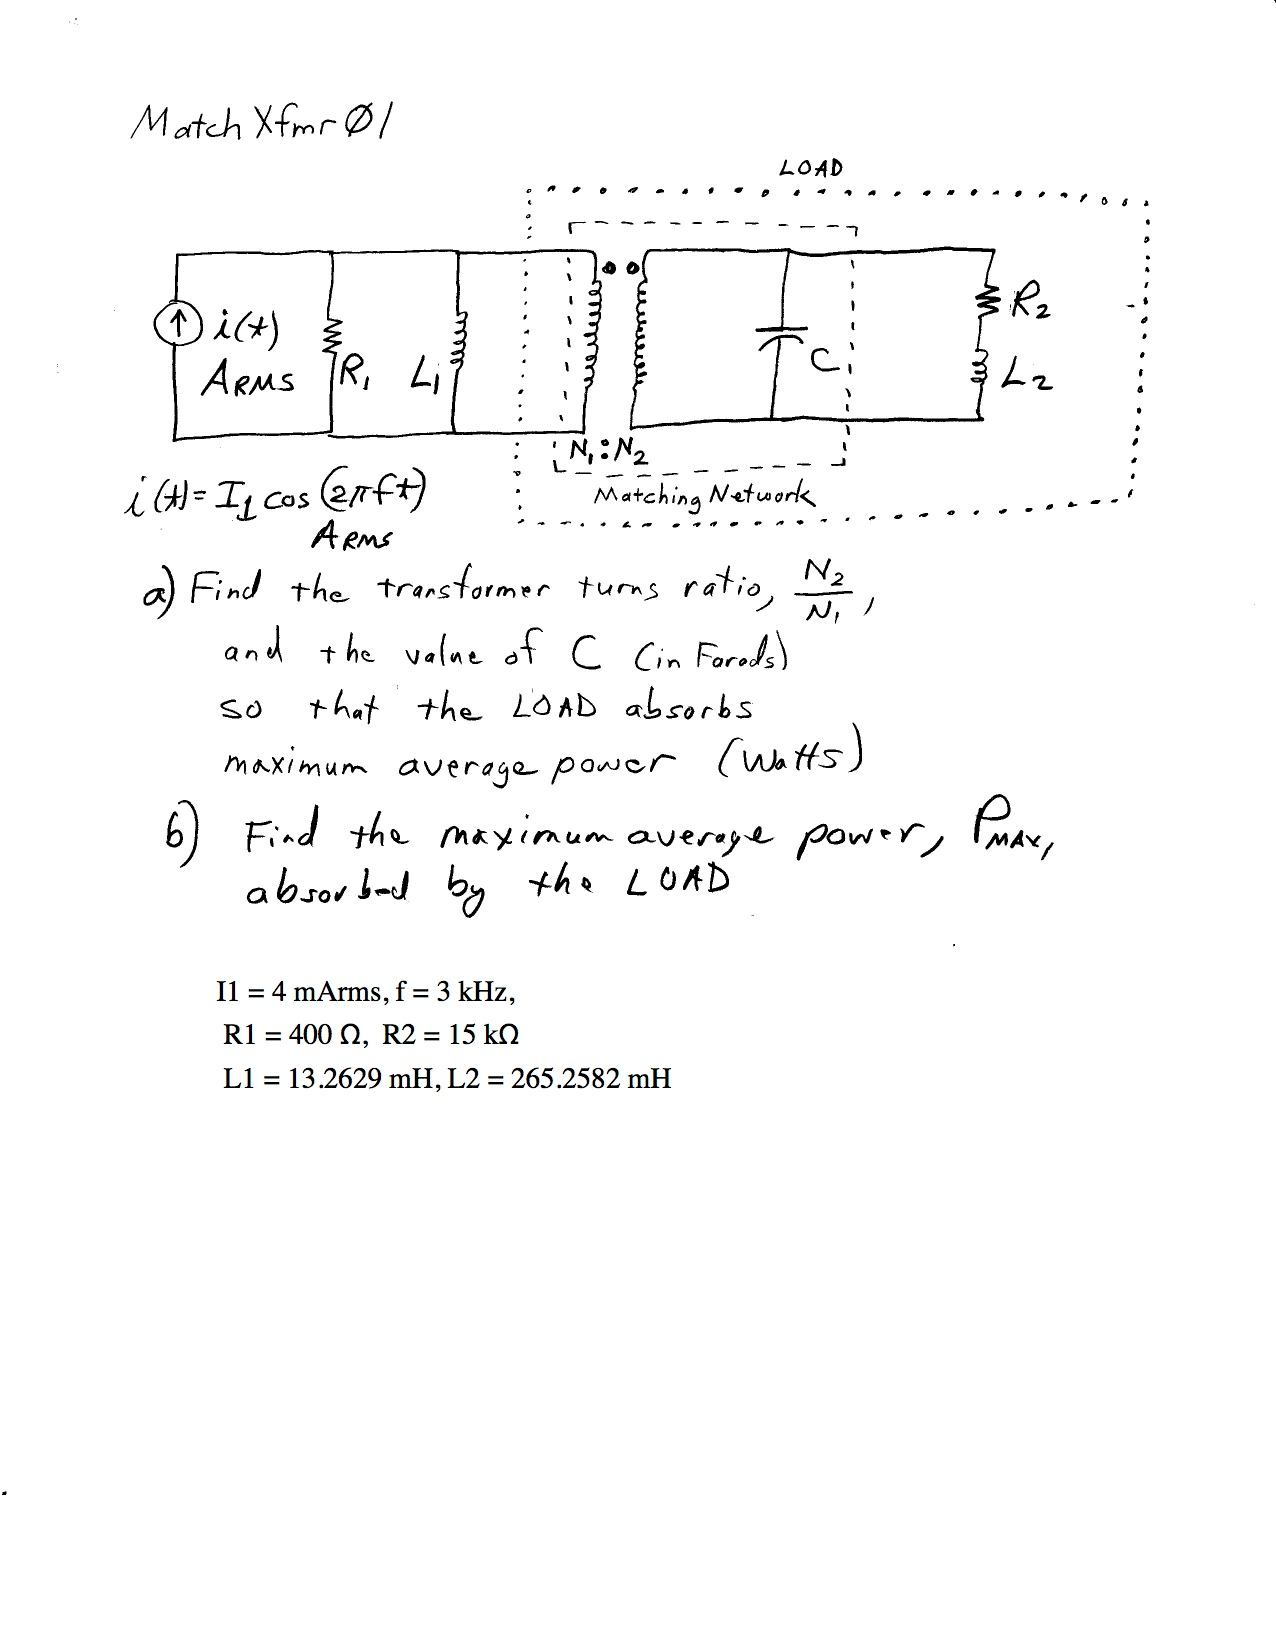 Match Xfmr Ø1
LOAD
i(t)
ARMS
R1
L1
C
R2
L2
N1:N2
Matching Network
i(t) = I1 cos (2πft)
ARMS
a) Find the transformer turns ratio, N2/N1,
and the value of C (in Farads)
so that the LOAD absorbs
maximum average power (Watts)
b) Find the maximum average power, PMAX,
absorbed by the LOAD
I1 = 4 mArms, f = 3 kHz,
R1 = 400 Ω, R2 = 15 kΩ
L1 = 13.2629 mH, L2 = 265.2582 mH